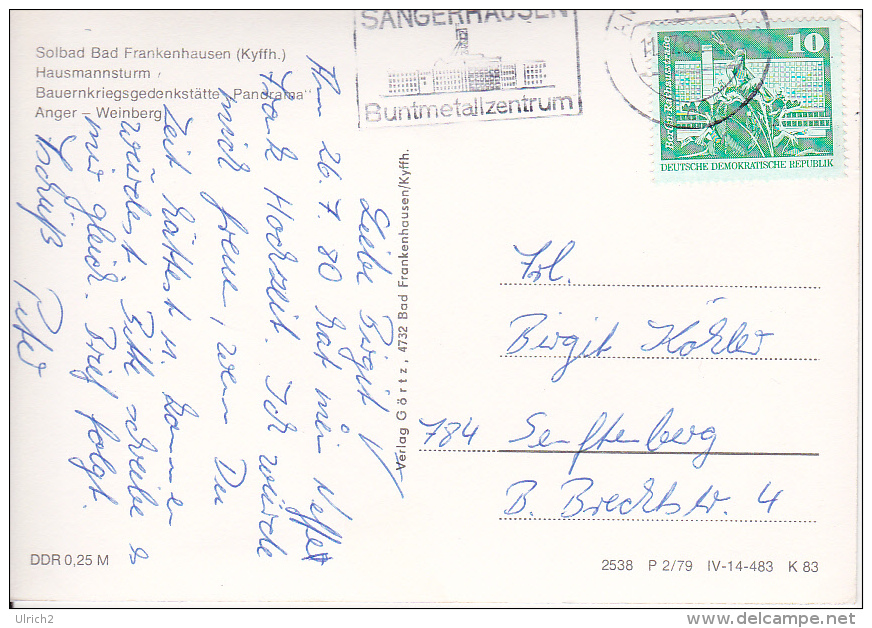 Solbad Bad Frankenhausen (Kyffh.)
Hausmannsturm
Bauernkriegsgedenkstätte „Panorama“
Anger – Weinberg
SANGERHAUSEN
Buntmetallzentrum
10
Berlin, Alexanderplatz
DEUTSCHE DEMOKRATISCHE REPUBLIK
Liebe Birgit
Am 26.7.80 hat mein Neffe
Hochzeit. Ich würde
mich freuen, wenn Du
Zeit hättest u. kommen
würdest. Bitte schreibe es
mir gleich. Brief folgt.
Tschüß Peter
Verlag Görtz, 4732 Bad Frankenhausen/Kyffh.
Frl.
Birgit Köhler
784 Senftenberg
B. Brechtstr. 4
DDR 0,25 M
2538 P 2/79 IV-14-483 K 83
Ulrich2
delcampe.net